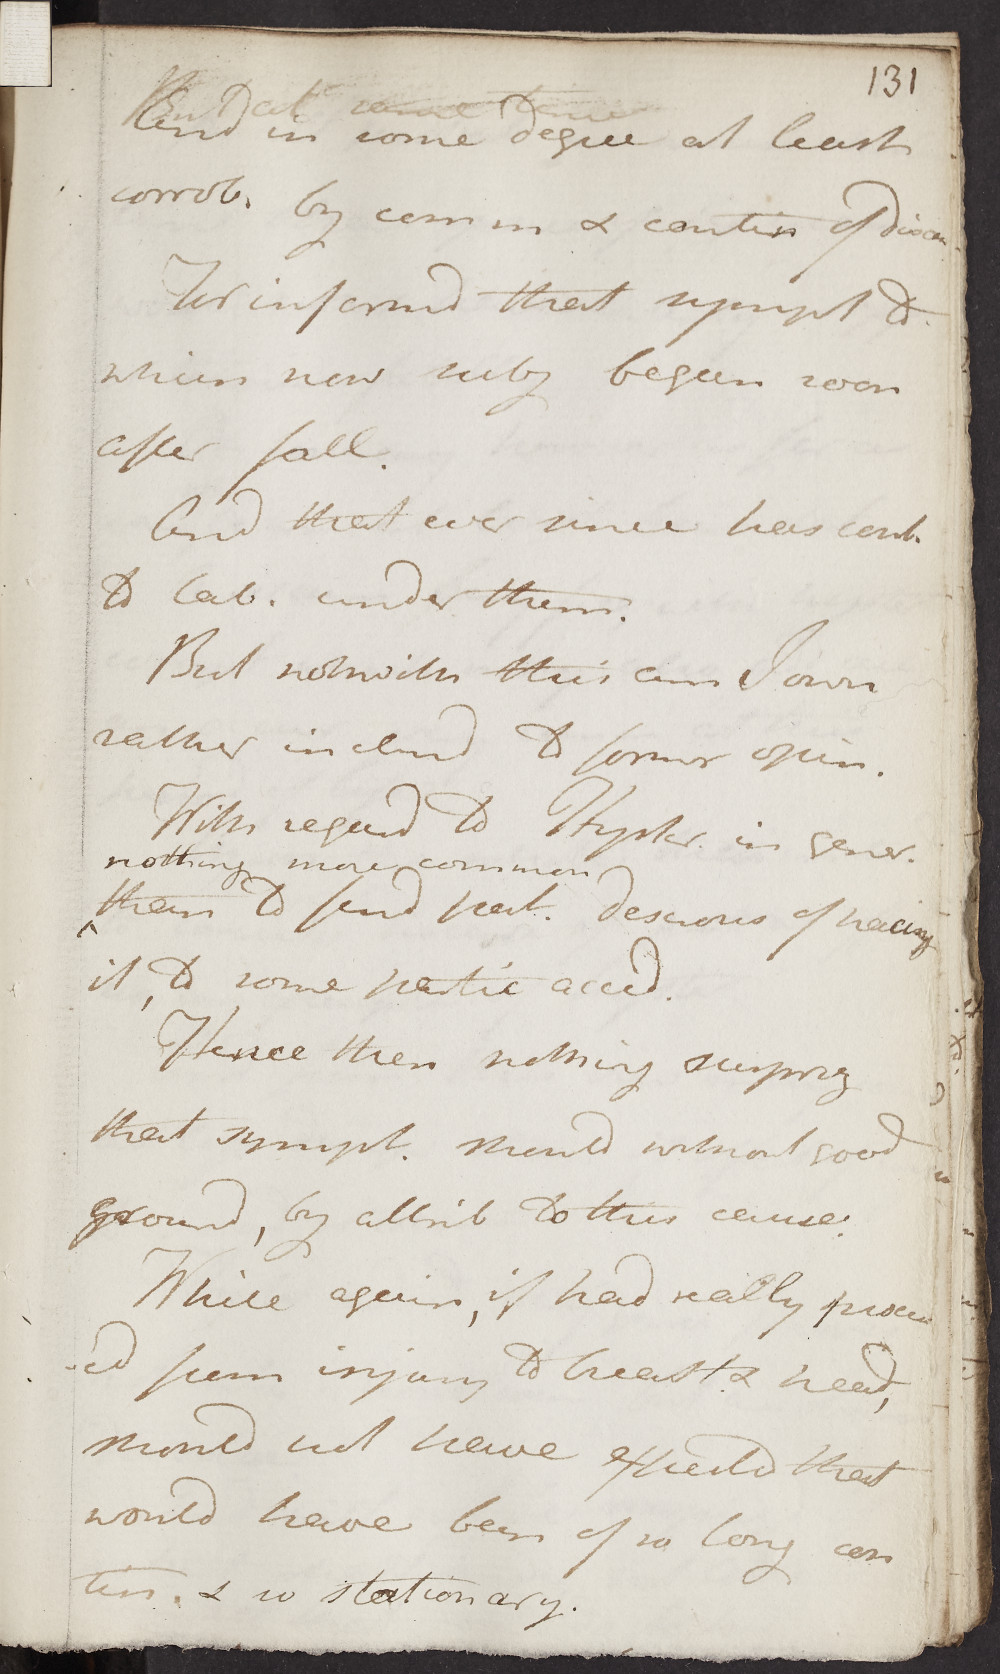 131
But at same time
And in some degree at least
corrob. by comm & contin of disea
For informd that sympt to
which now subj began soon
after fall.
And that ever since has cont.
to lab. under them.
But notwith this am I own
rather inclind to former opin.
With regard to Hyster. in gener.
nothing more common
than to find pat. desirous of tracing
it, to some partic accid.
Hence then nothing surprisg
that sympt. should without good
ground, by attrib to this cause.
While again, if had really proceed
-ed from injury to breast & head,
should not have expected that
would have been of so long con
tin. & so stationary.